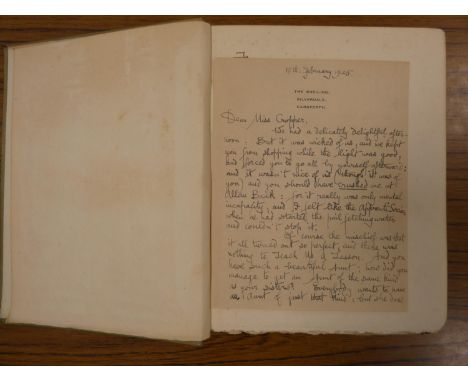 17th. February, 1925.
THE SHELING,
SILVERDALE,
CARNFORTH.
Dear Miss Cropper,
We had a delicately delightful after-
noon. But it was wicked of us, and we kept
you from shopping while the light was good,
and forced you to go all by yourself afterward;
and it wasn't nice of us it was of
you, and you should have crushed me at
Allan Bank: for it really was only mental
incapacity, and I felt like the Apprentice
when he had started the pail fetching water
and couldn't stop it.
Of course the mischief was that
it all turned out so perfect, and there was
nothing to Teach Us a Lesson. And you
have such a beautiful Aunt: how did you
manage to get an Aunt of the same kind
as your sisters? Everybody wants to have
an Aunt of just that kind; but she does